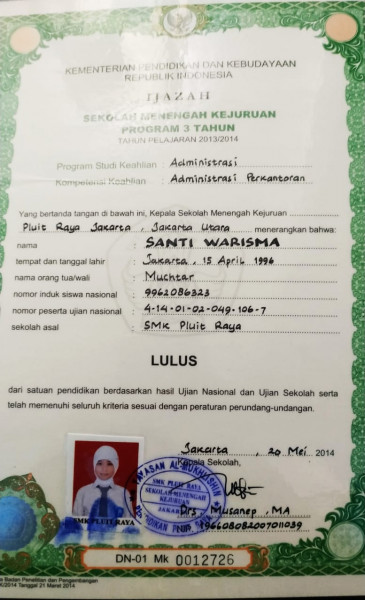 KEMENTERIAN PENDIDIKAN DAN KEBUDAYAAN
REPUBLIK INDONESIA
IJAZAH
SEKOLAH MENENGAH KEJURUAN
PROGRAM 3 TAHUN
TAHUN PELAJARAN 2013/2014
Program Studi Keahlian : Administrasi
Kompetensi Keahlian : Administrasi Perkantoran
Yang bertanda tangan di bawah ini, Kepala Sekolah Menengah Kejuruan
Pluit Raya Jakarta , Jakarta Utara menerangkan bahwa:
nama : SANTI WARISMA
tempat dan tanggal lahir : Jakarta, 15 April 1996
nama orang tua/wali : Muchtar
nomor induk siswa nasional : 9962086323
nomor peserta ujian nasional : 4-14-01-02-049-106-7
sekolah asal : SMK Pluit Raya
LULUS
dari satuan pendidikan berdasarkan hasil Ujian Nasional dan Ujian Sekolah serta
telah memenuhi seluruh kriteria sesuai dengan peraturan perundang-undangan.
Jakarta , 20 Mei 2014
Kepala Sekolah,
YAYASAN AL
SMK PLUIT RAYA
SEKOLAH MENENGAH
KEJURUAN
JAKARTA
SMK PLUIT RAYA
Drs Musanep , MA
196608082007011039
DN-01 Mk 0012726
Badan Penelitian dan Pengembangan
/2014 Tanggal 21 Maret 2014